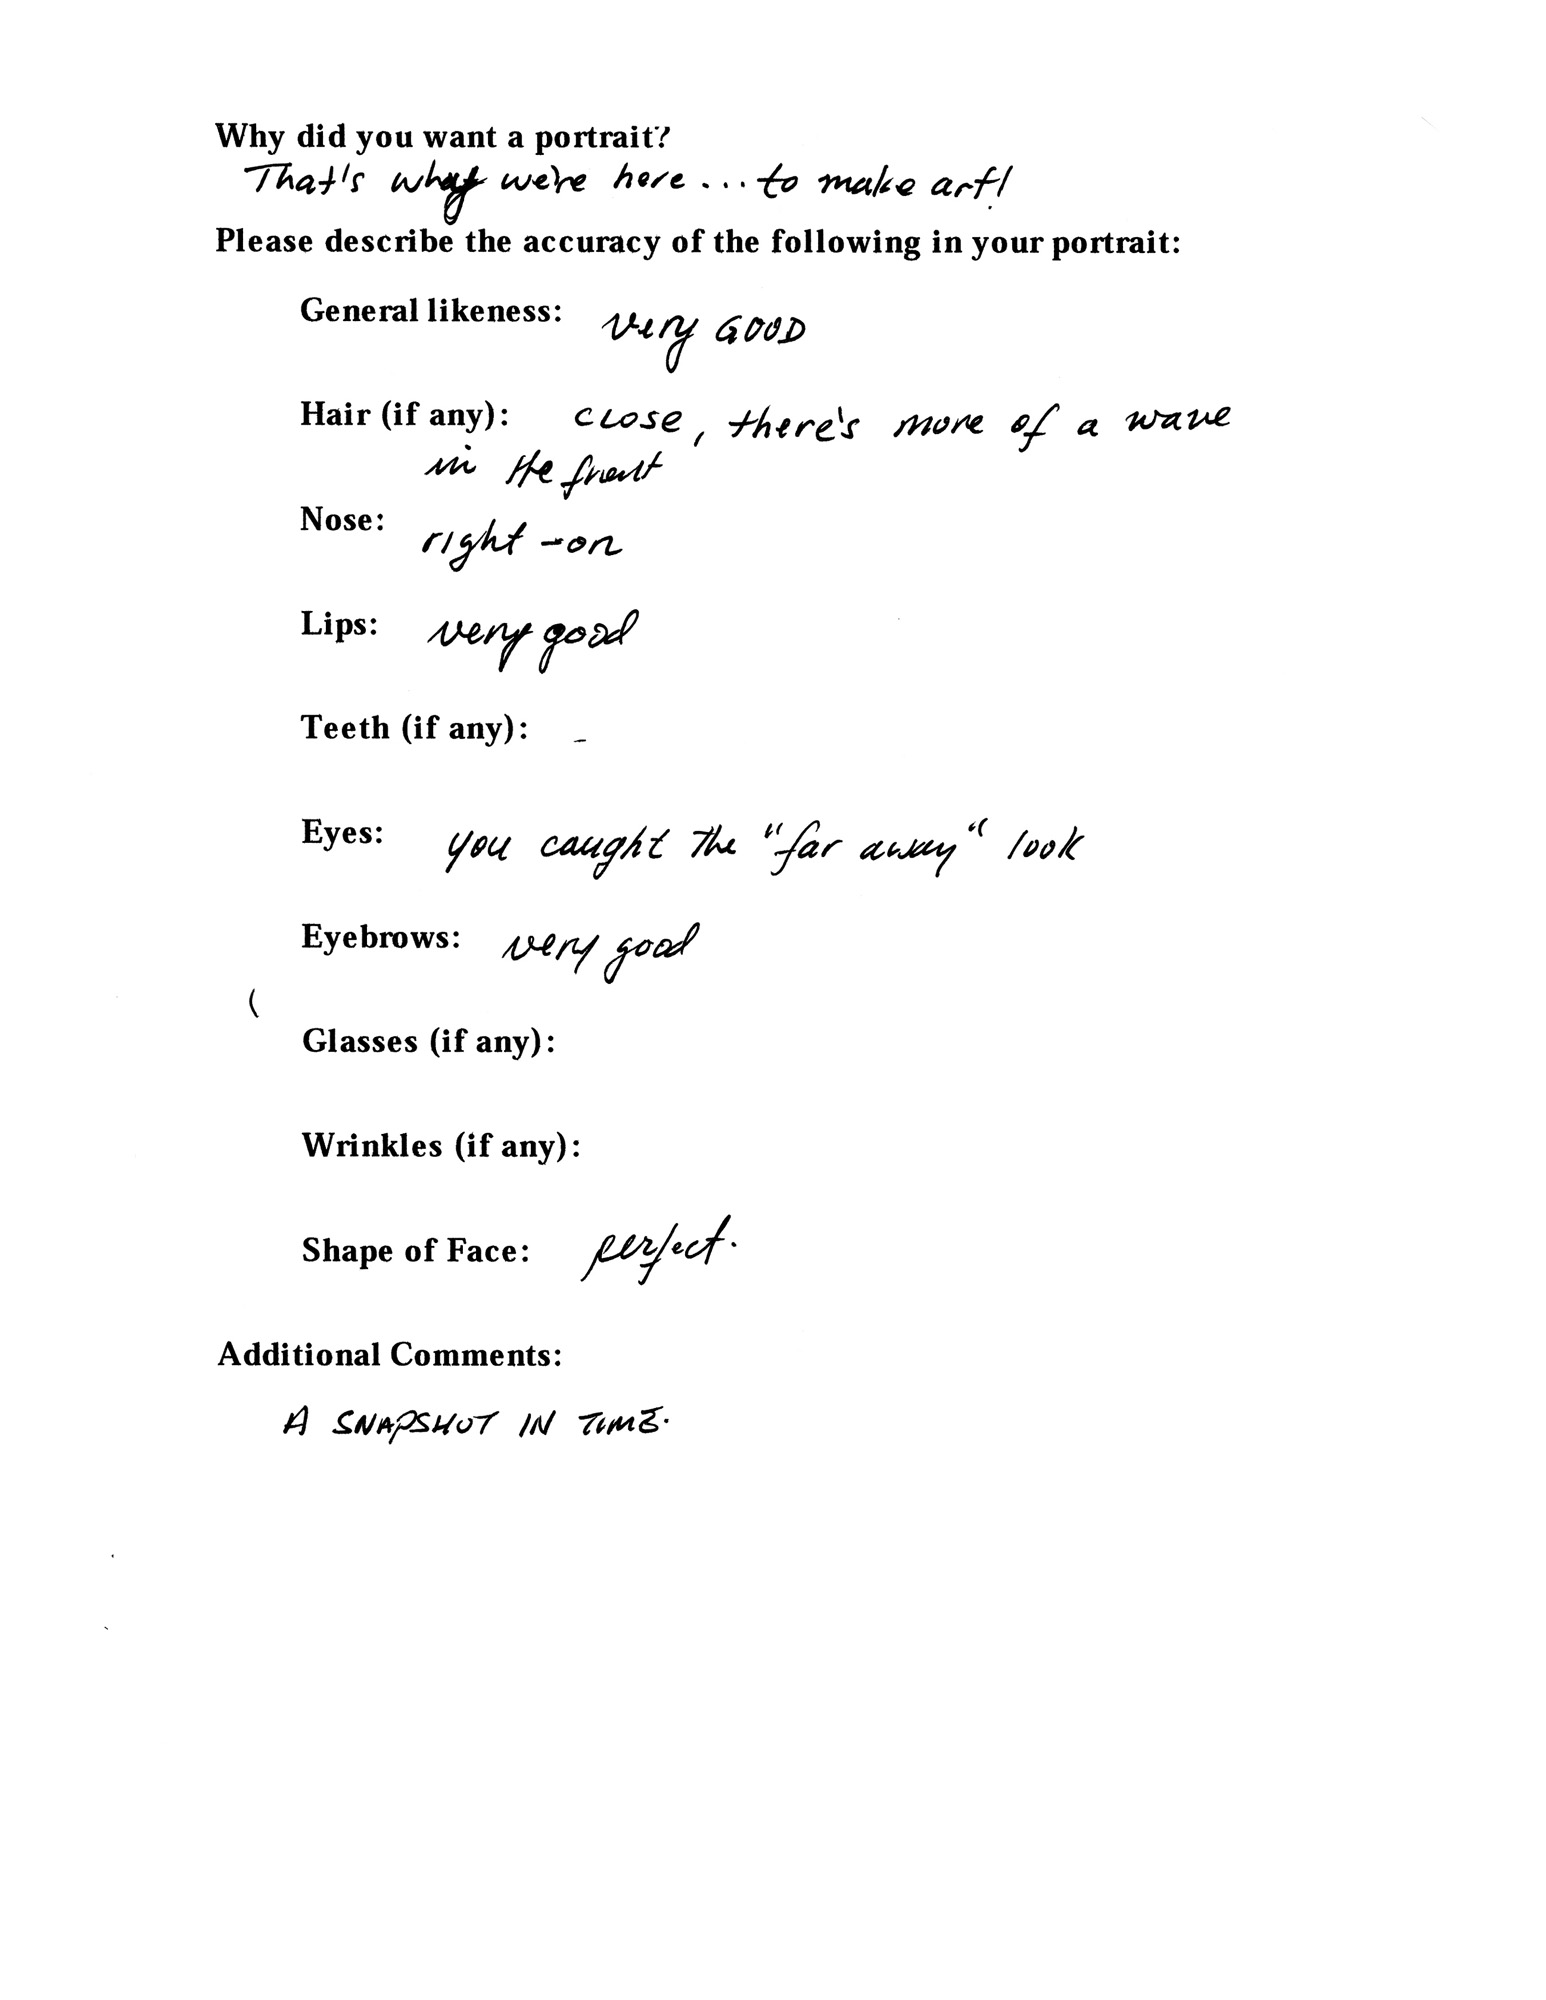 Why did you want a portrait?
That's why we're here... to make art!
Please describe the accuracy of the following in your portrait:
General likeness: very GOOD
Hair (if any): CLOSE, there's more of a wave
in the front
Nose: right-on
Lips: very good
Teeth (if any): -
Eyes: you caught the "far away" look
Eyebrows: very good
(
Glasses (if any):
Wrinkles (if any):
Shape of Face: perfect.
Additional Comments:
A SNAPSHOT IN TIME.